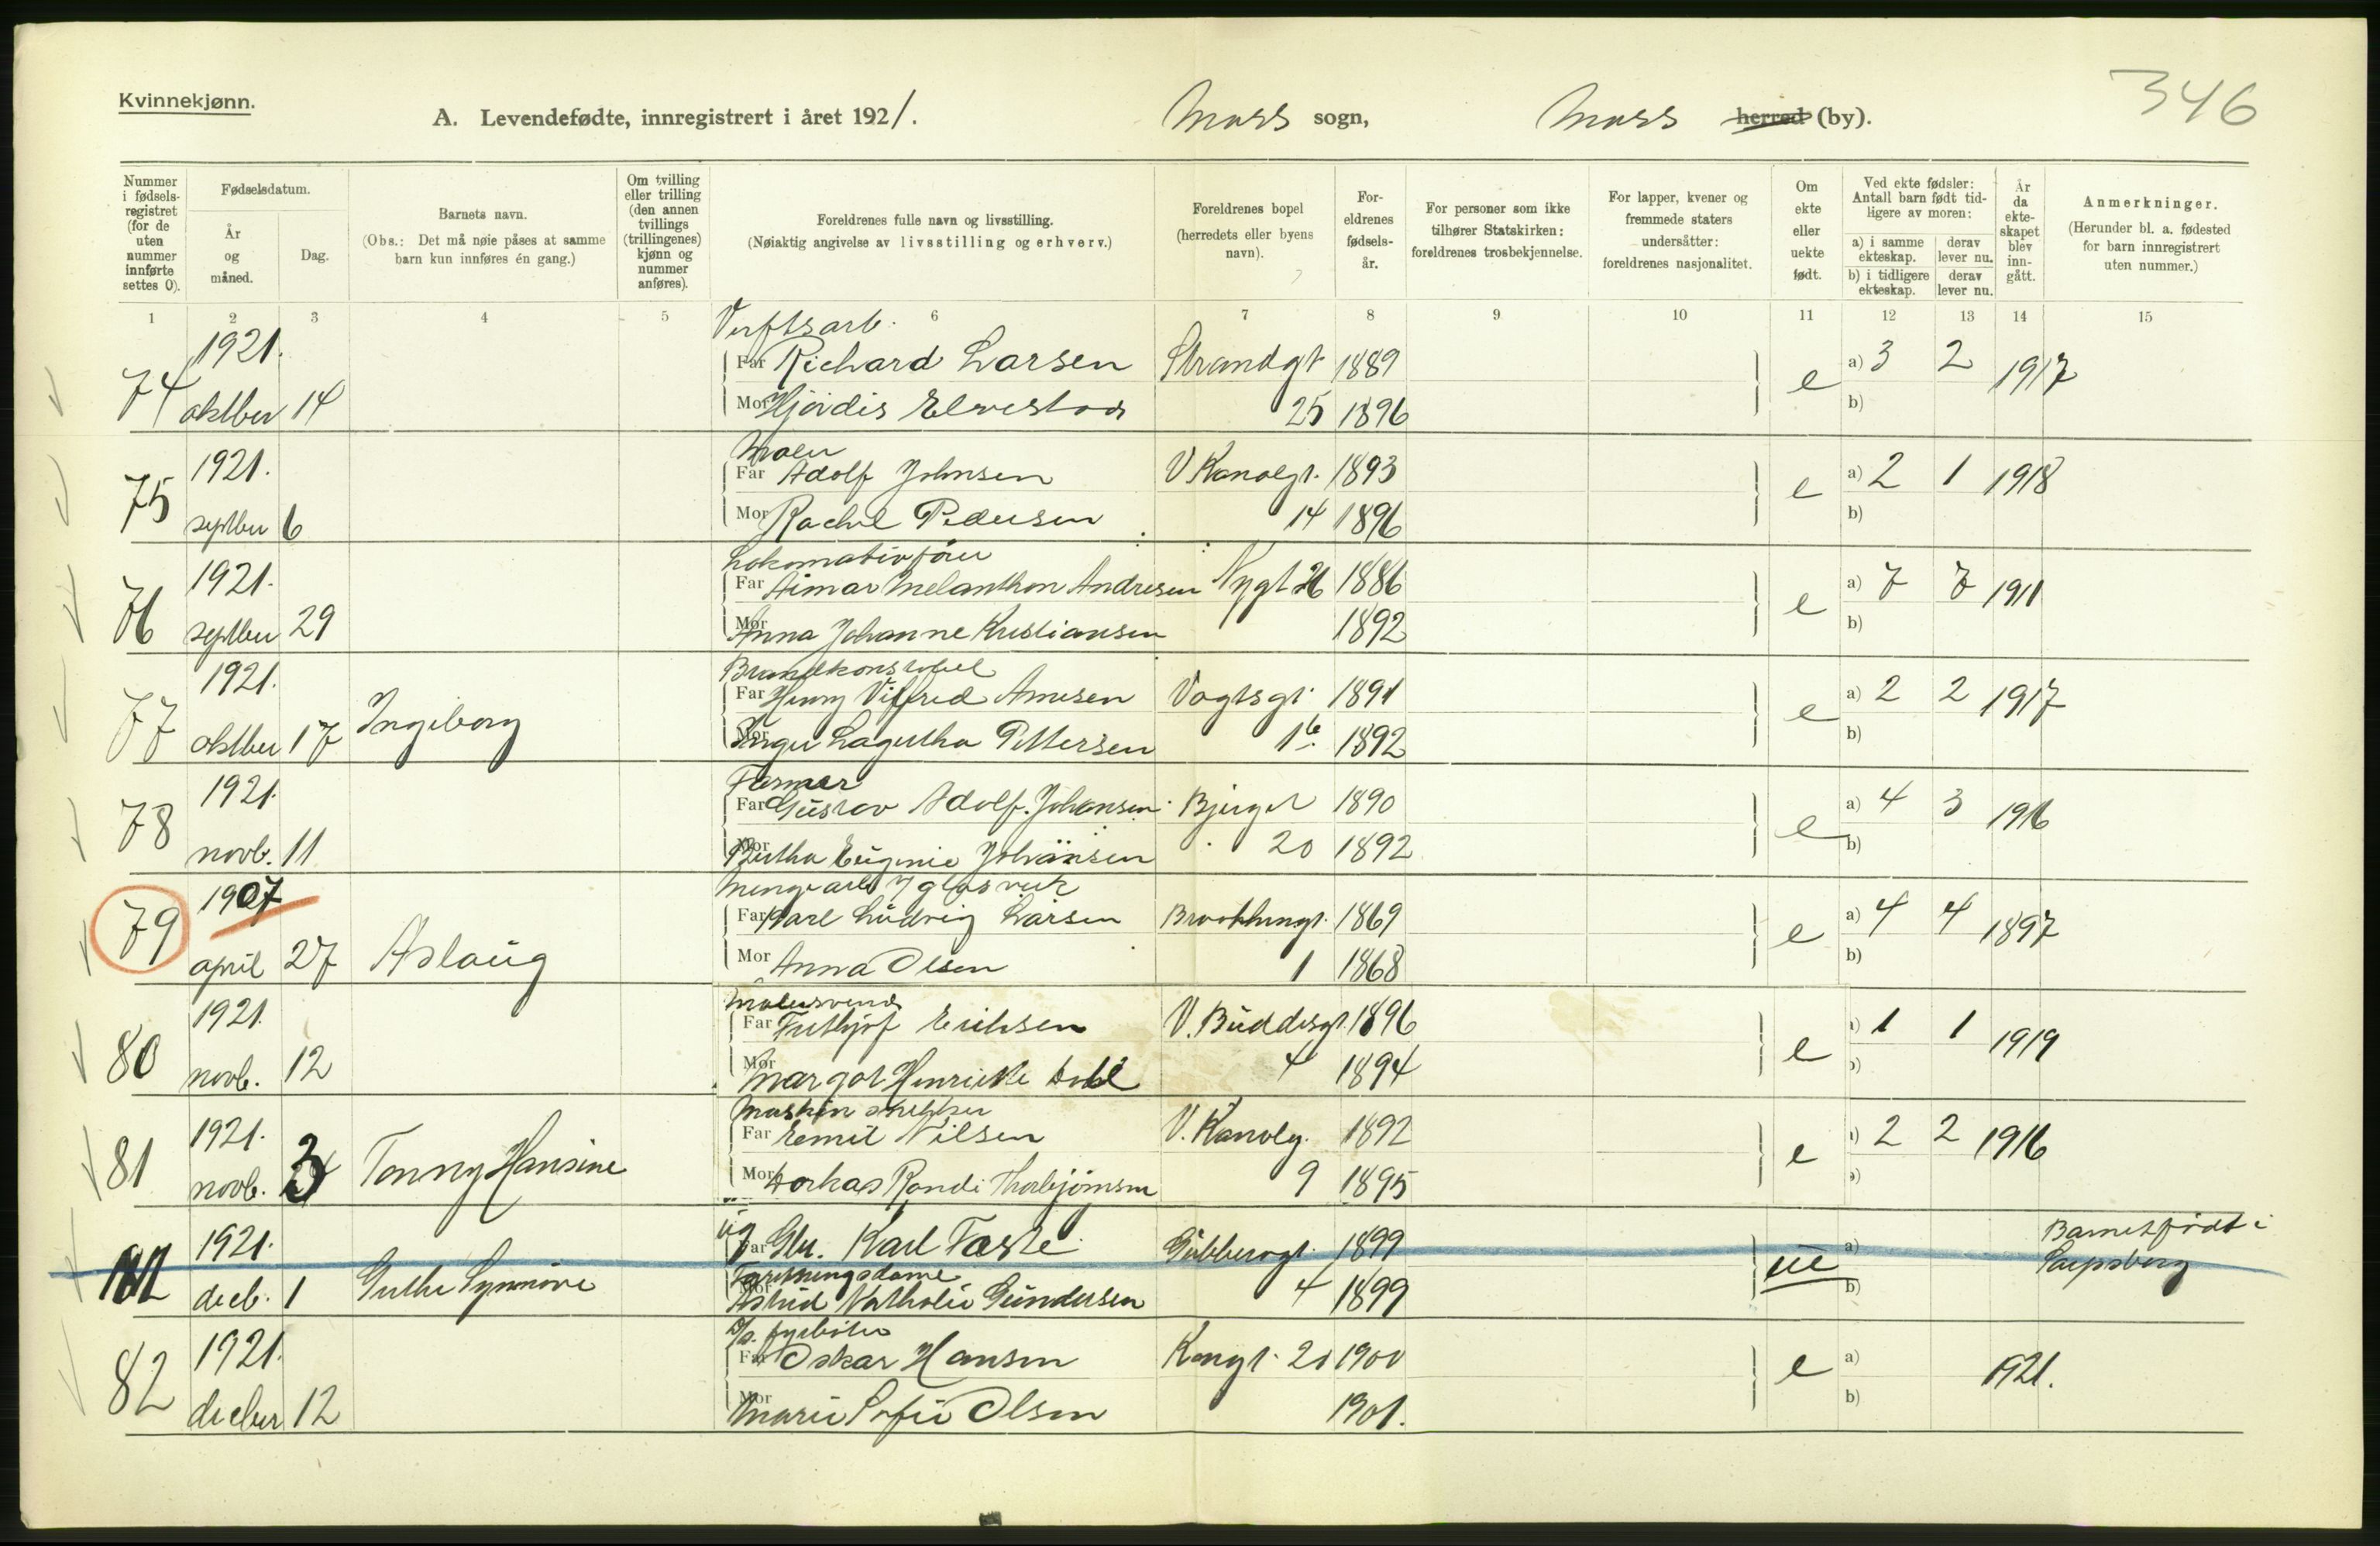 Kvinnekjønn.
A. Levendefødte, innregistrert i året 1921. Moss sogn, Moss herred (by).
346
Nummer i fødselsregistret (for de uten nummer innførte settes 0).
Fødselsdatum.
År og måned.
Dag.
Barnets navn.
(Obs.: Det må nøie påses at samme barn kun innføres én gang.)
Om tvilling eller trilling (den annen tvillings (trillingenes) kjønn og nummer anføres).
Foreldrenes fulle navn og livsstilling.
(Nøiaktig angivelse av livsstilling og erhverv.)
Foreldrenes bopel (herredets eller byens navn).
Foreldrenes fødselsår.
For personer som ikke tilhører Statskirken: foreldrenes trosbekjennelse.
For lapper, kvener og fremmede staters undersåtter: foreldrenes nasjonalitet.
Om ekte eller uekte født.
Ved ekte fødsler: Antall barn født tidligere av moren:
a) i samme ekteskap. derav lever nu.
b) i tidligere ekteskap. derav lever nu.
År da ekteskapet blev inngått.
Anmerkninger.
(Herunder bl. a. fødested for barn innregistrert uten nummer.)
1 2 3 4 5 6 7 8 9 10 11 12 13 14 15
Verftsarb.
1921.
Far Richard Larsen Strandgt 1889 a) 3 2
74 oktber 14 e 1917
Mor Hjördis Elvestad 25 1896 b)
Maler
1921.
Far Adolf Johnsen V Kanalgt. 1893 a) 2 1
75 septber 6 e 1918
Mor Rachel Pedersen 14 1896 b)
Lokomativförer
1921.
Far Aimar Melanthon Andresen Nygt 26 1886 a) 7 7
76 septber 29 e 1911
Mor Anna Johanne Kristiansen 1892 b)
Brandkonstabel
1921.
Far Henry Vilfred Arnesen Vogtsgt. 1891 a) 2 2
77 oktber 17 Ingeborg e 1917
Mor Inga Lagertha Pettersen 1b 1892 b)
Farmer
1921.
Far Gustav Adolf Johansen Bjergt 1890 a) 4 3
78 novb. 11 e 1916
Mor Bertha Eugenie Johansen 20 1892 b)
1907
Far Karl Ludvig Larsen 1869 a) 4 4
79 april 27 Aslaug e 1897
Mor Anna Olsen 1 1868 b)
Malersvend
1921.
Far Frithjof Eriksen V. Buddesgt. 1896 1 1
80 novb. 12 e 1919
Mor Margot Henriette Dahl 4 1894
Maskinsnekker
1921.
Far Emil Nilsen V. Kanalg. 1892 2 2
81 novb. 3 Tonny Hansine e 1916
Mor Dorkas Randi Thorbjörnsen 9 1895
1921.
ug Far Gbr. Karl Taske Gubberogt. 1899 a) Barnet födt i
decb. 1 Guthe Synnöve ue Sarpsborg
Forretningsdame
Mor Astrid Nathalie Gundersen 4 1899 b)
fyrböter
1921.
Far Oskar Hansen Kongt. 20 1900 a)
82 decber 12 e 1921.
Mor Marie Sofie Olsen 1901. b)